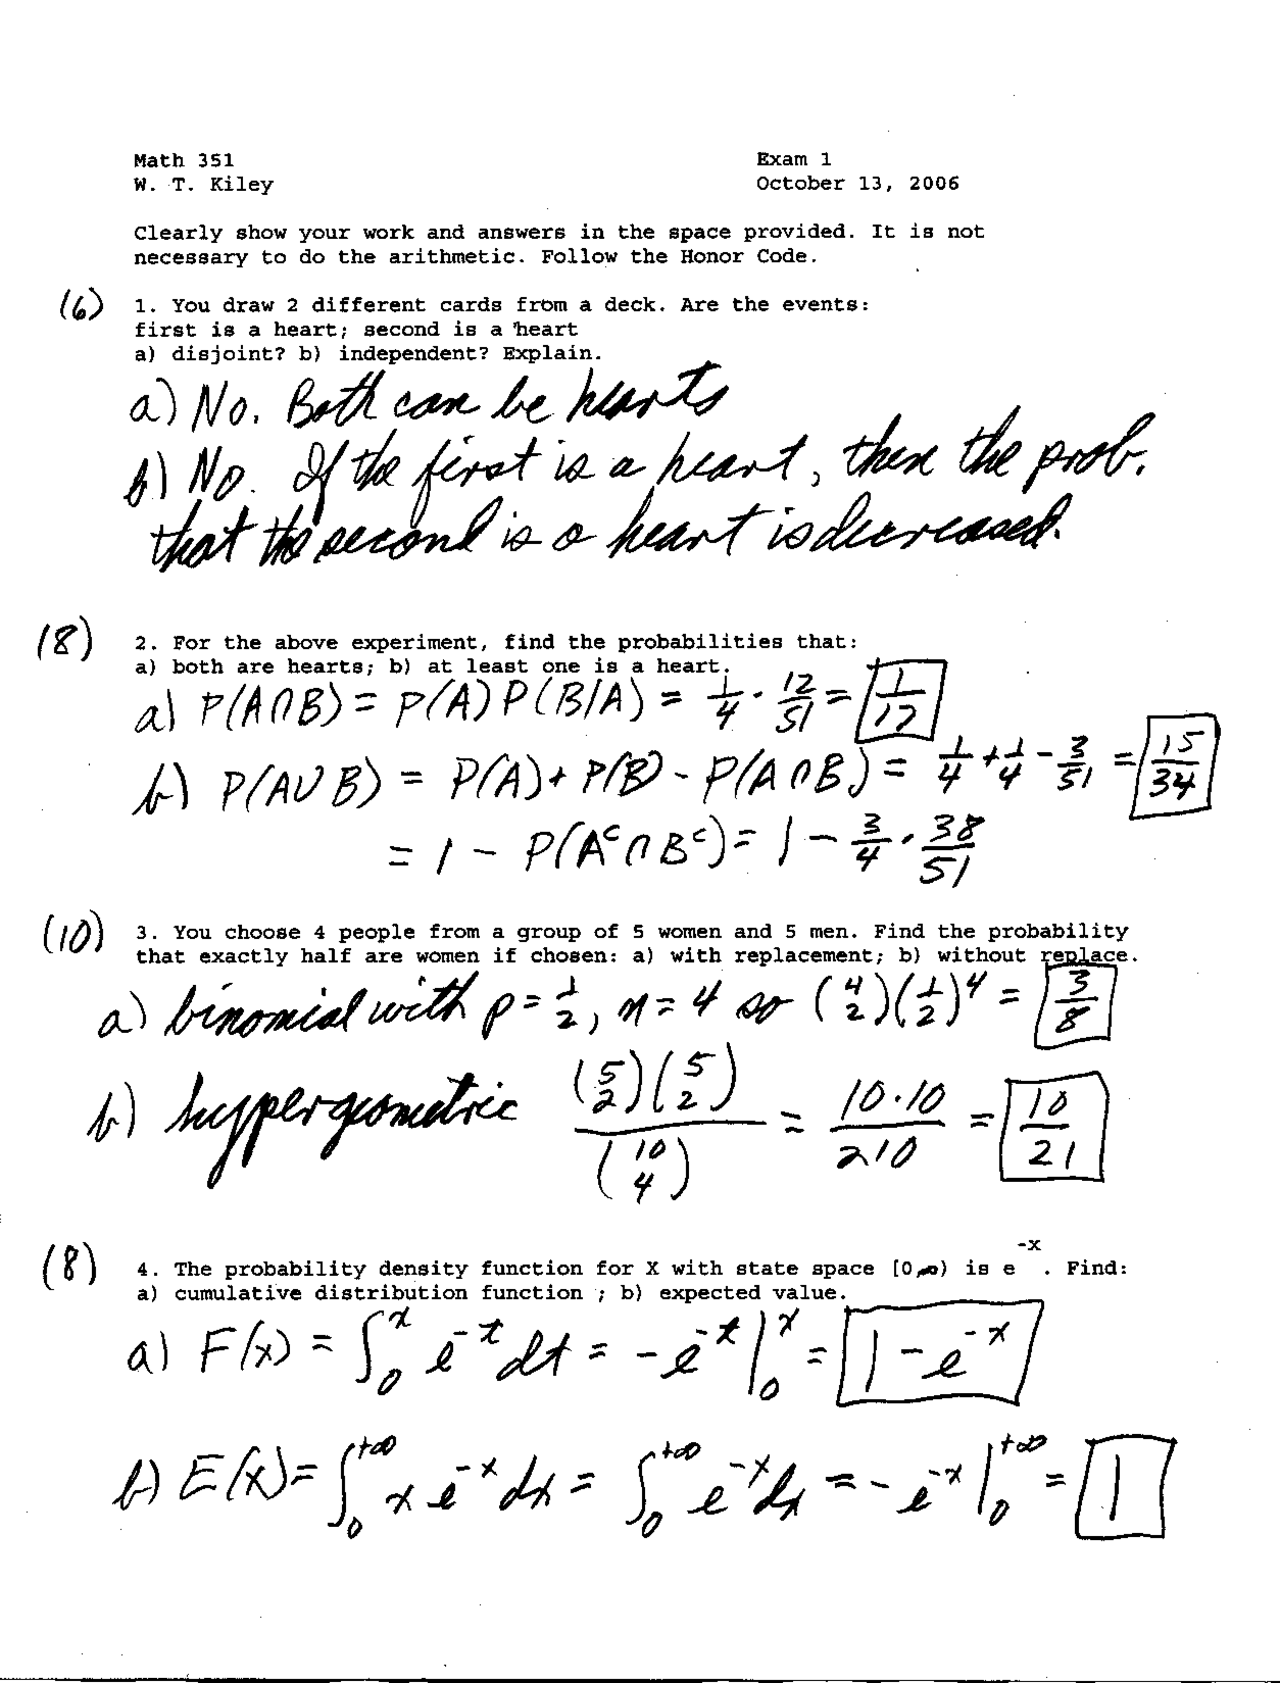 Math 351 Exam 1
W. T. Kiley October 13, 2006
Clearly show your work and answers in the space provided. It is not
necessary to do the arithmetic. Follow the Honor Code.
(6) 1. You draw 2 different cards from a deck. Are the events:
first is a heart; second is a heart
a) disjoint? b) independent? Explain.
a) No. Both can be hearts
b) No. If the first is a heart, then the prob.
that the second is a heart is decreased.
(8) 2. For the above experiment, find the probabilities that:
a) both are hearts; b) at least one is a heart.
a) P(A∩B) = P(A) P(B/A) = 1/4 · 12/51 = 1/17
b) P(A∪B) = P(A) + P(B) - P(A∩B) = 1/4 + 1/4 - 3/51 = 15/34
= 1 - P(Aᶜ∩Bᶜ) = 1 - 3/4 · 38/51
(10) 3. You choose 4 people from a group of 5 women and 5 men. Find the probability
that exactly half are women if chosen: a) with replacement; b) without replace.
a) binomial with p = 1/2, n = 4 so (4 2)(1/2)^4 = 3/8
b) hypergeometric (5 2)(5 2)/(10 4) = 10·10/210 = 10/21
(8) 4. The probability density function for X with state space [0,∞) is e^-x. Find:
a) cumulative distribution function ; b) expected value.
a) F(x) = ∫₀ˣ e^-t dt = -e^-t |₀ˣ = 1 - e^-x
b) E(x) = ∫₀^+∞ x e^-x dx = ∫₀^+∞ e^-x dx = - e^-x |₀^+∞ = 1